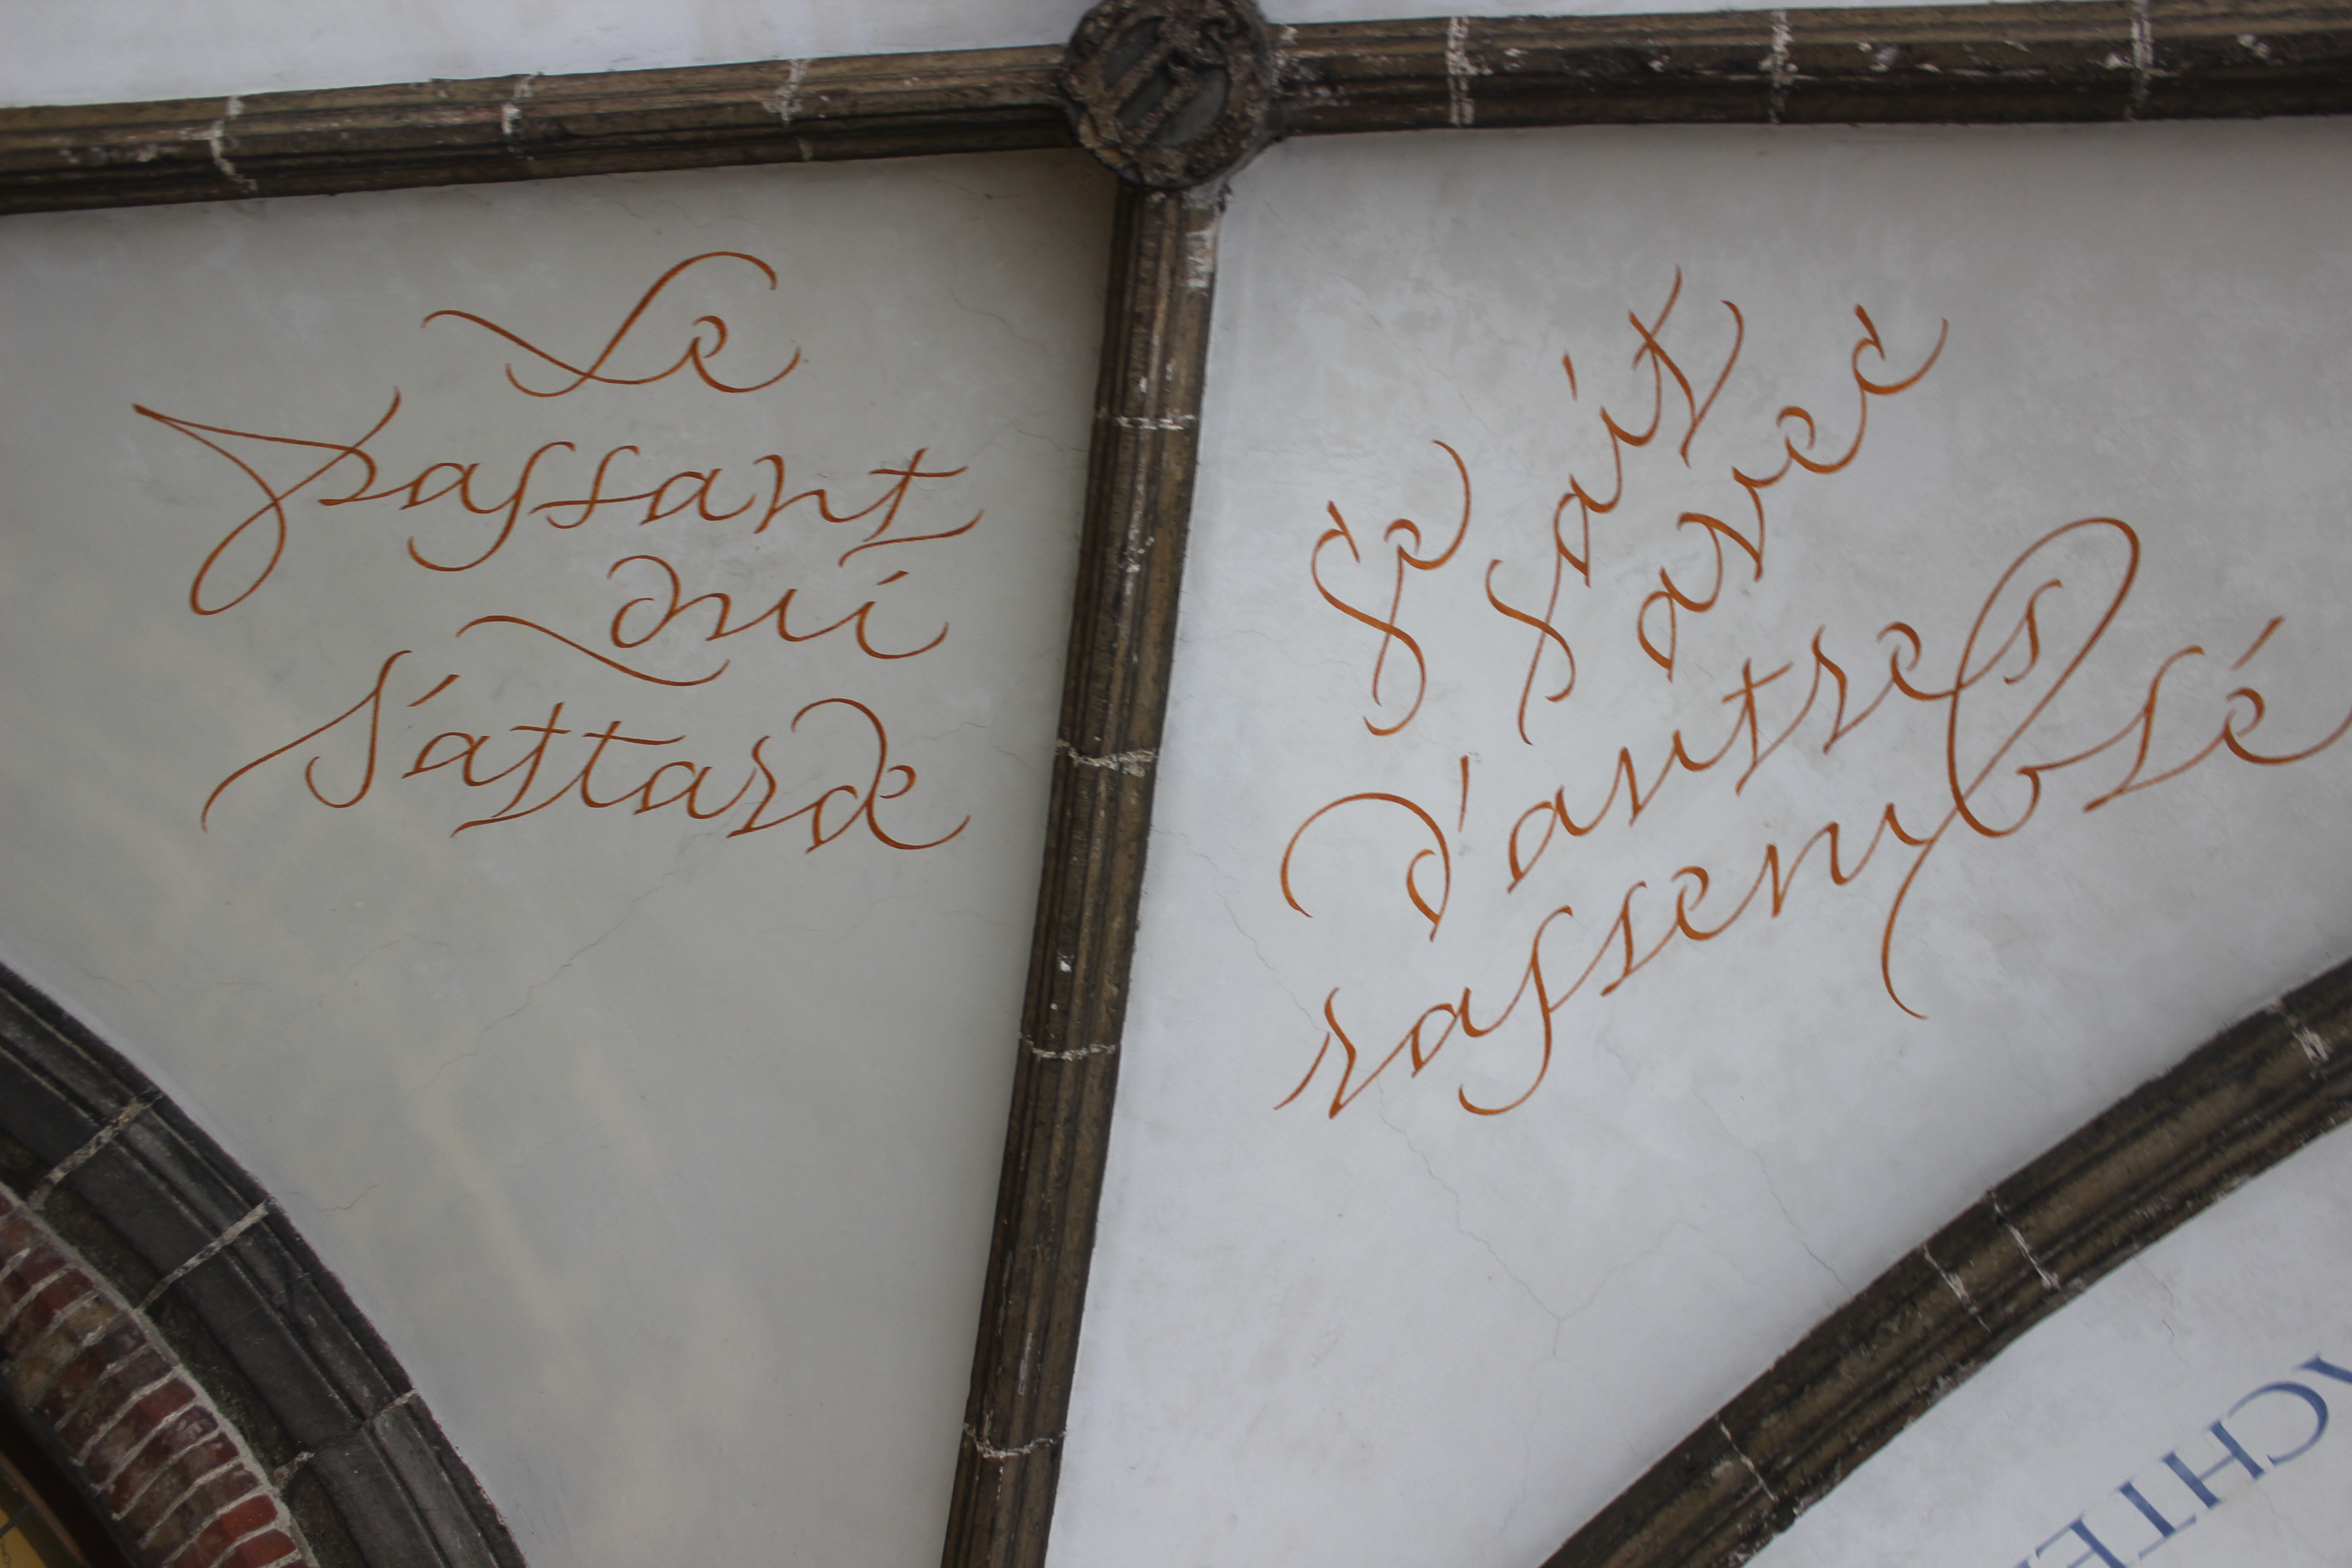 Le
passant
qui
s'attarde
se
sait
avec
d'autres
rassemblé
ACHTE